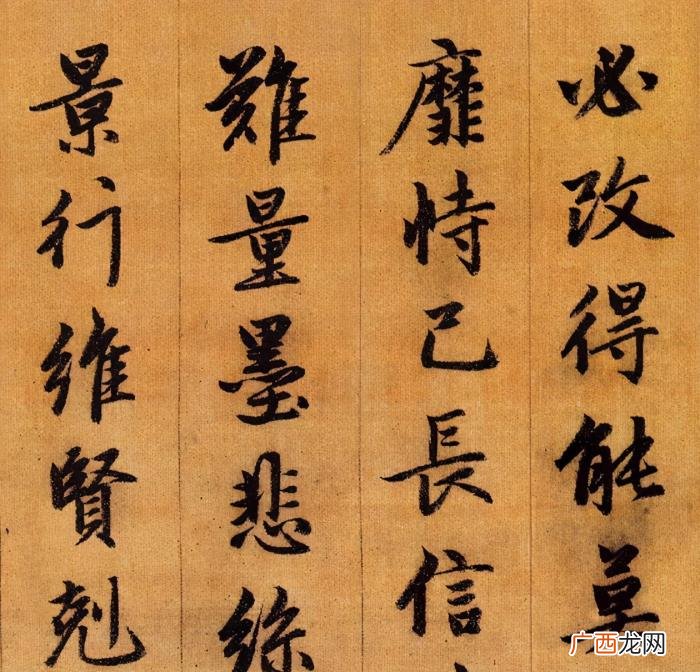 必改得能莫
靡恃己長信
難量墨悲絲
景行維賢剋
广西龙网